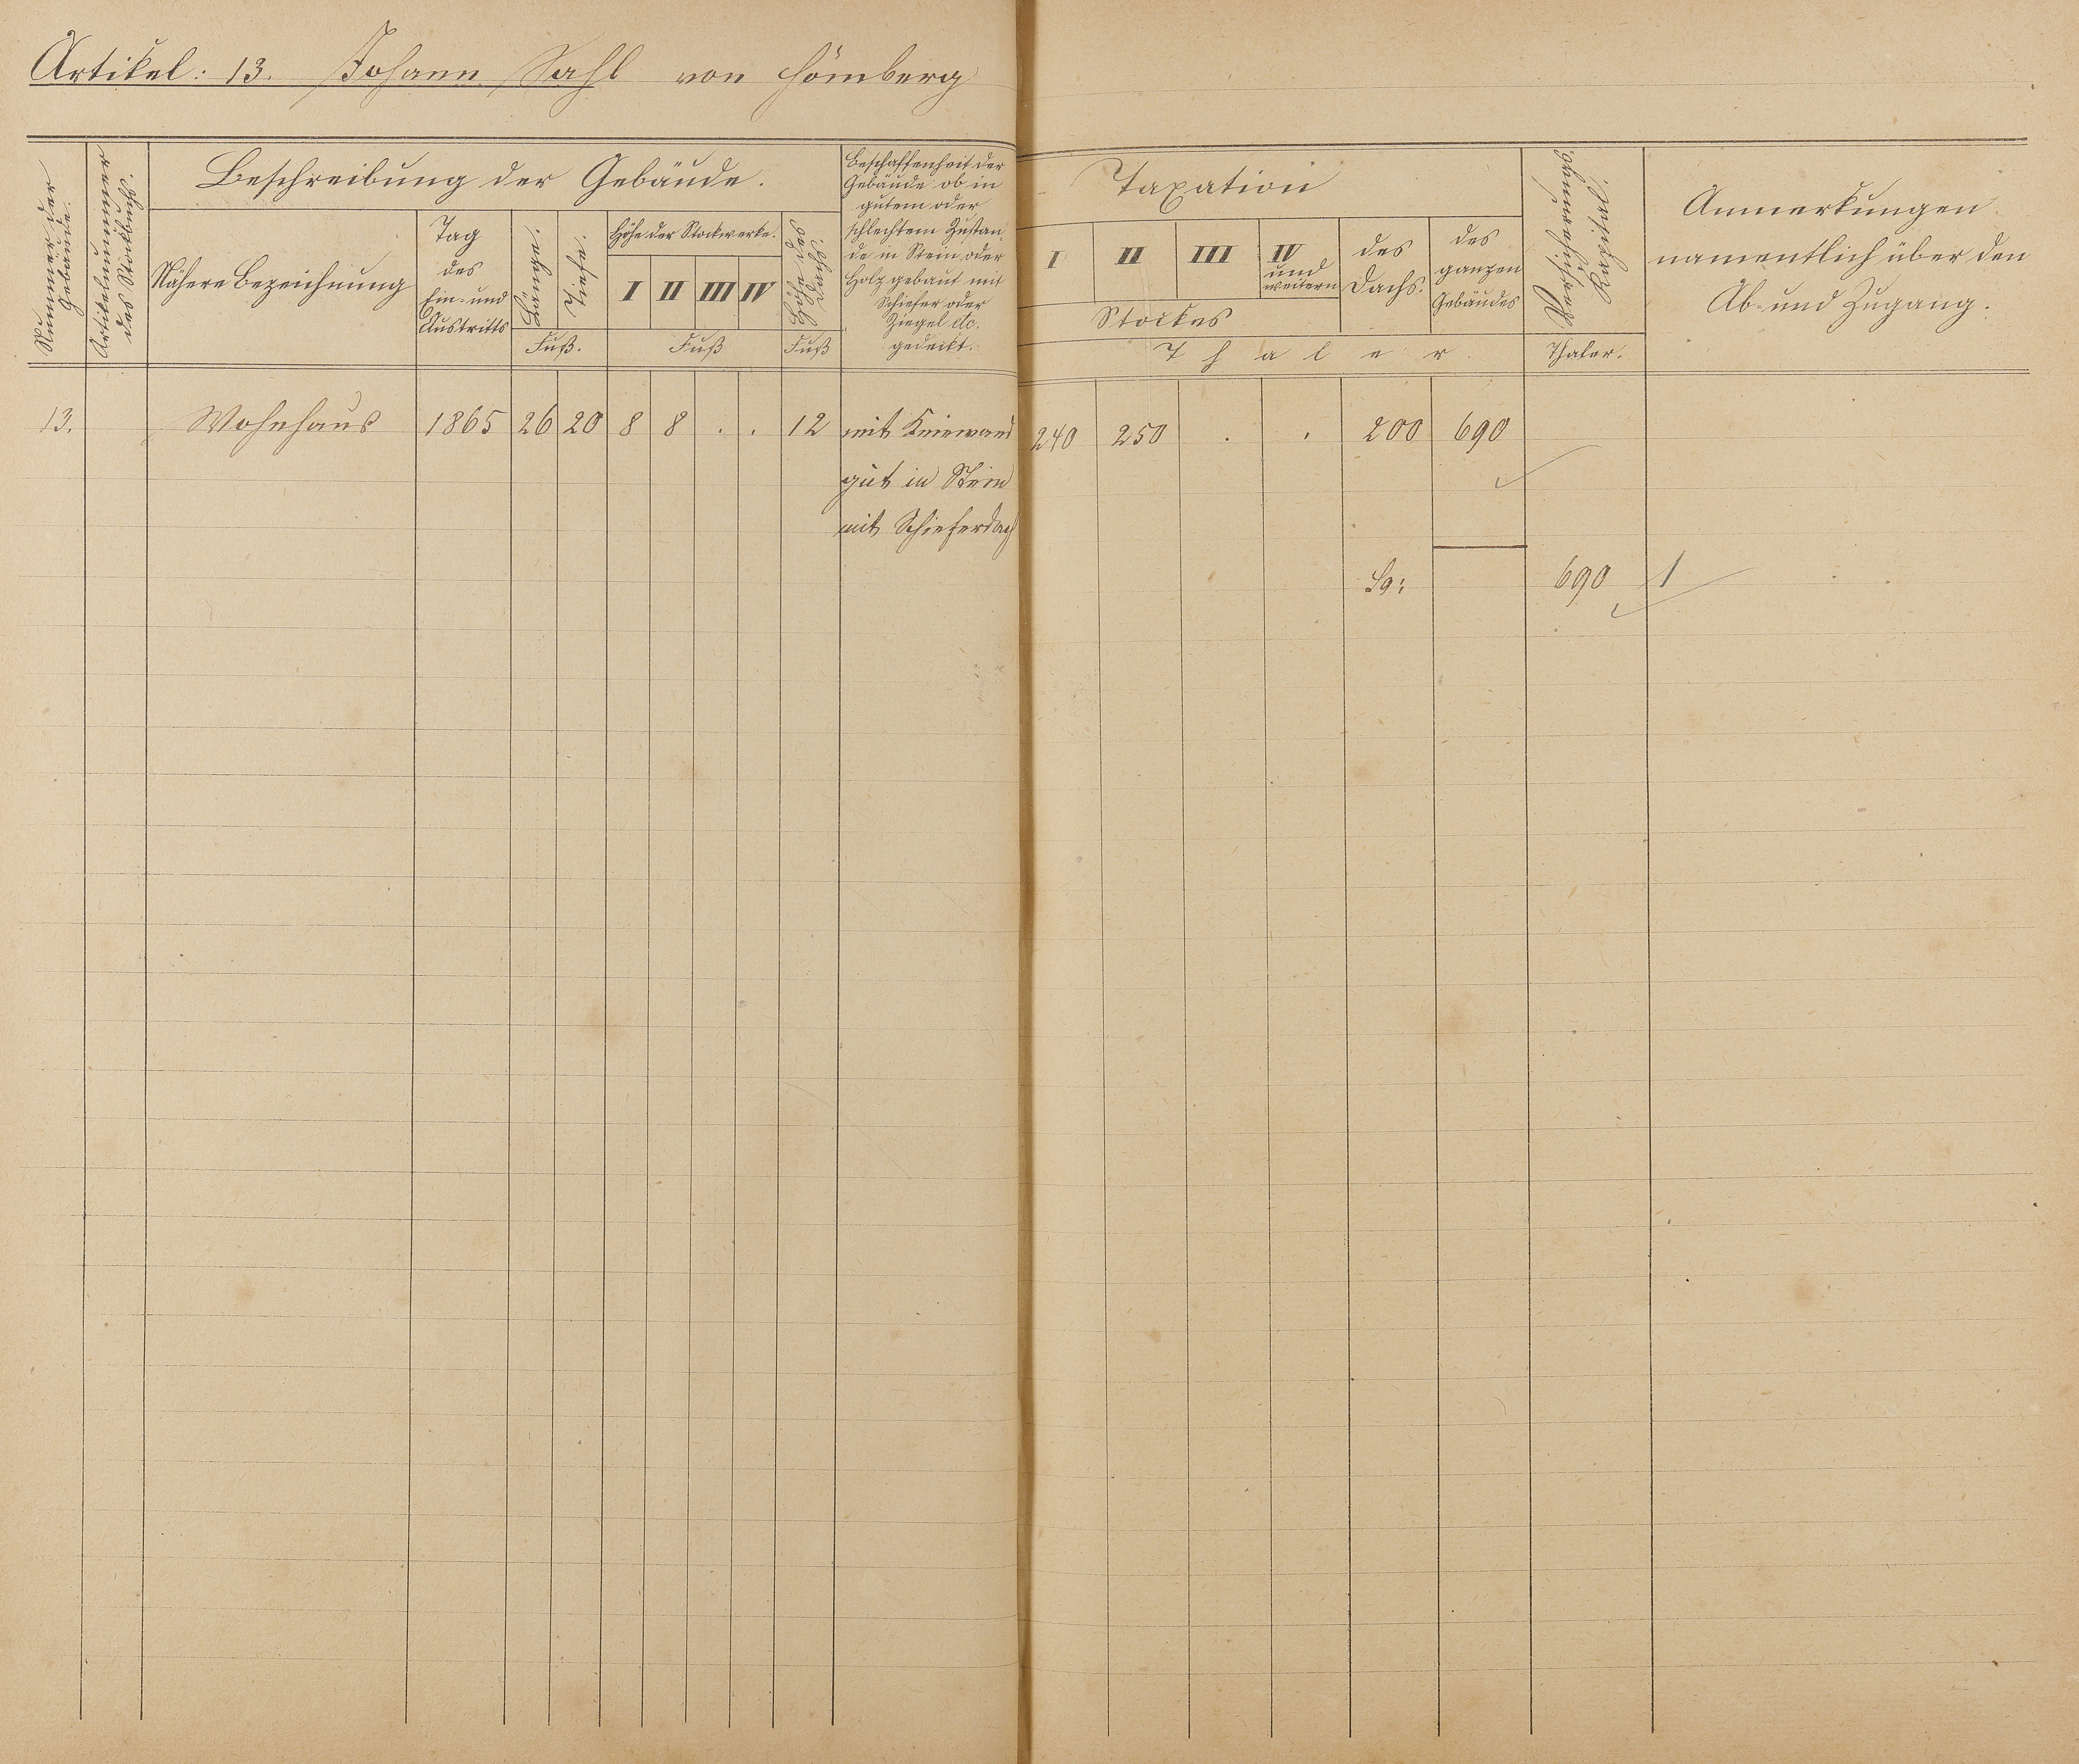 Artikel: 13. Johann Sahl von Hömberg
Nummer der Gebäude.
Artikelnummer des Stockbuchs.
Beschreibung der Gebäude.
Nähere Bezeichnung
Tag
des
Ein- und
Austritts
Länge.
Tiefe.
Fuß.
Höhe der Stockwerke.
I II III IV
Fuß
Höhe des Dachs.
Fuß
Beschaffenheit der
Gebäude ob in
gutem oder
schlechtem Zustan
de in Stein oder
Holz gebaut mit
Schiefer oder
Ziegel etc.
gedeckt.
Taxation
I II III IV
und
weitern
Stockes
des
Dachs.
des
ganzen
Gebäudes
Thaler.
Versicherungs
Kapital.
Thaler.
Anmerkungen
namentlich über den
Ab- und Zugang.
13. Wohnhaus 1865 26 20 8 8 . . 12 mit Kniewand 240 250 . . 200 690
gut in Stein
mit Schieferdach
Sa: 690 1